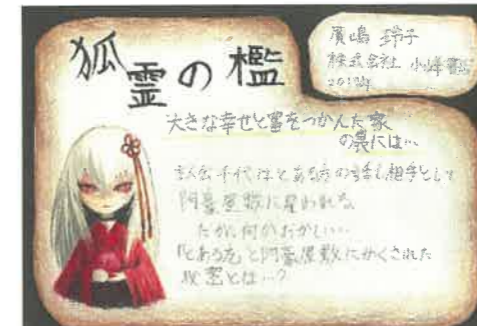 狐霊の檻
廣嶋 玲子
株式会社 小峰書店
大きな幸せと富をつかんだ家
の裏には…
千代 とある方の話し相手として
阿豪屋敷に雇われる
だが、何かおかしい…
「とある方」と阿豪屋敷にかくされた
秘密とは…?